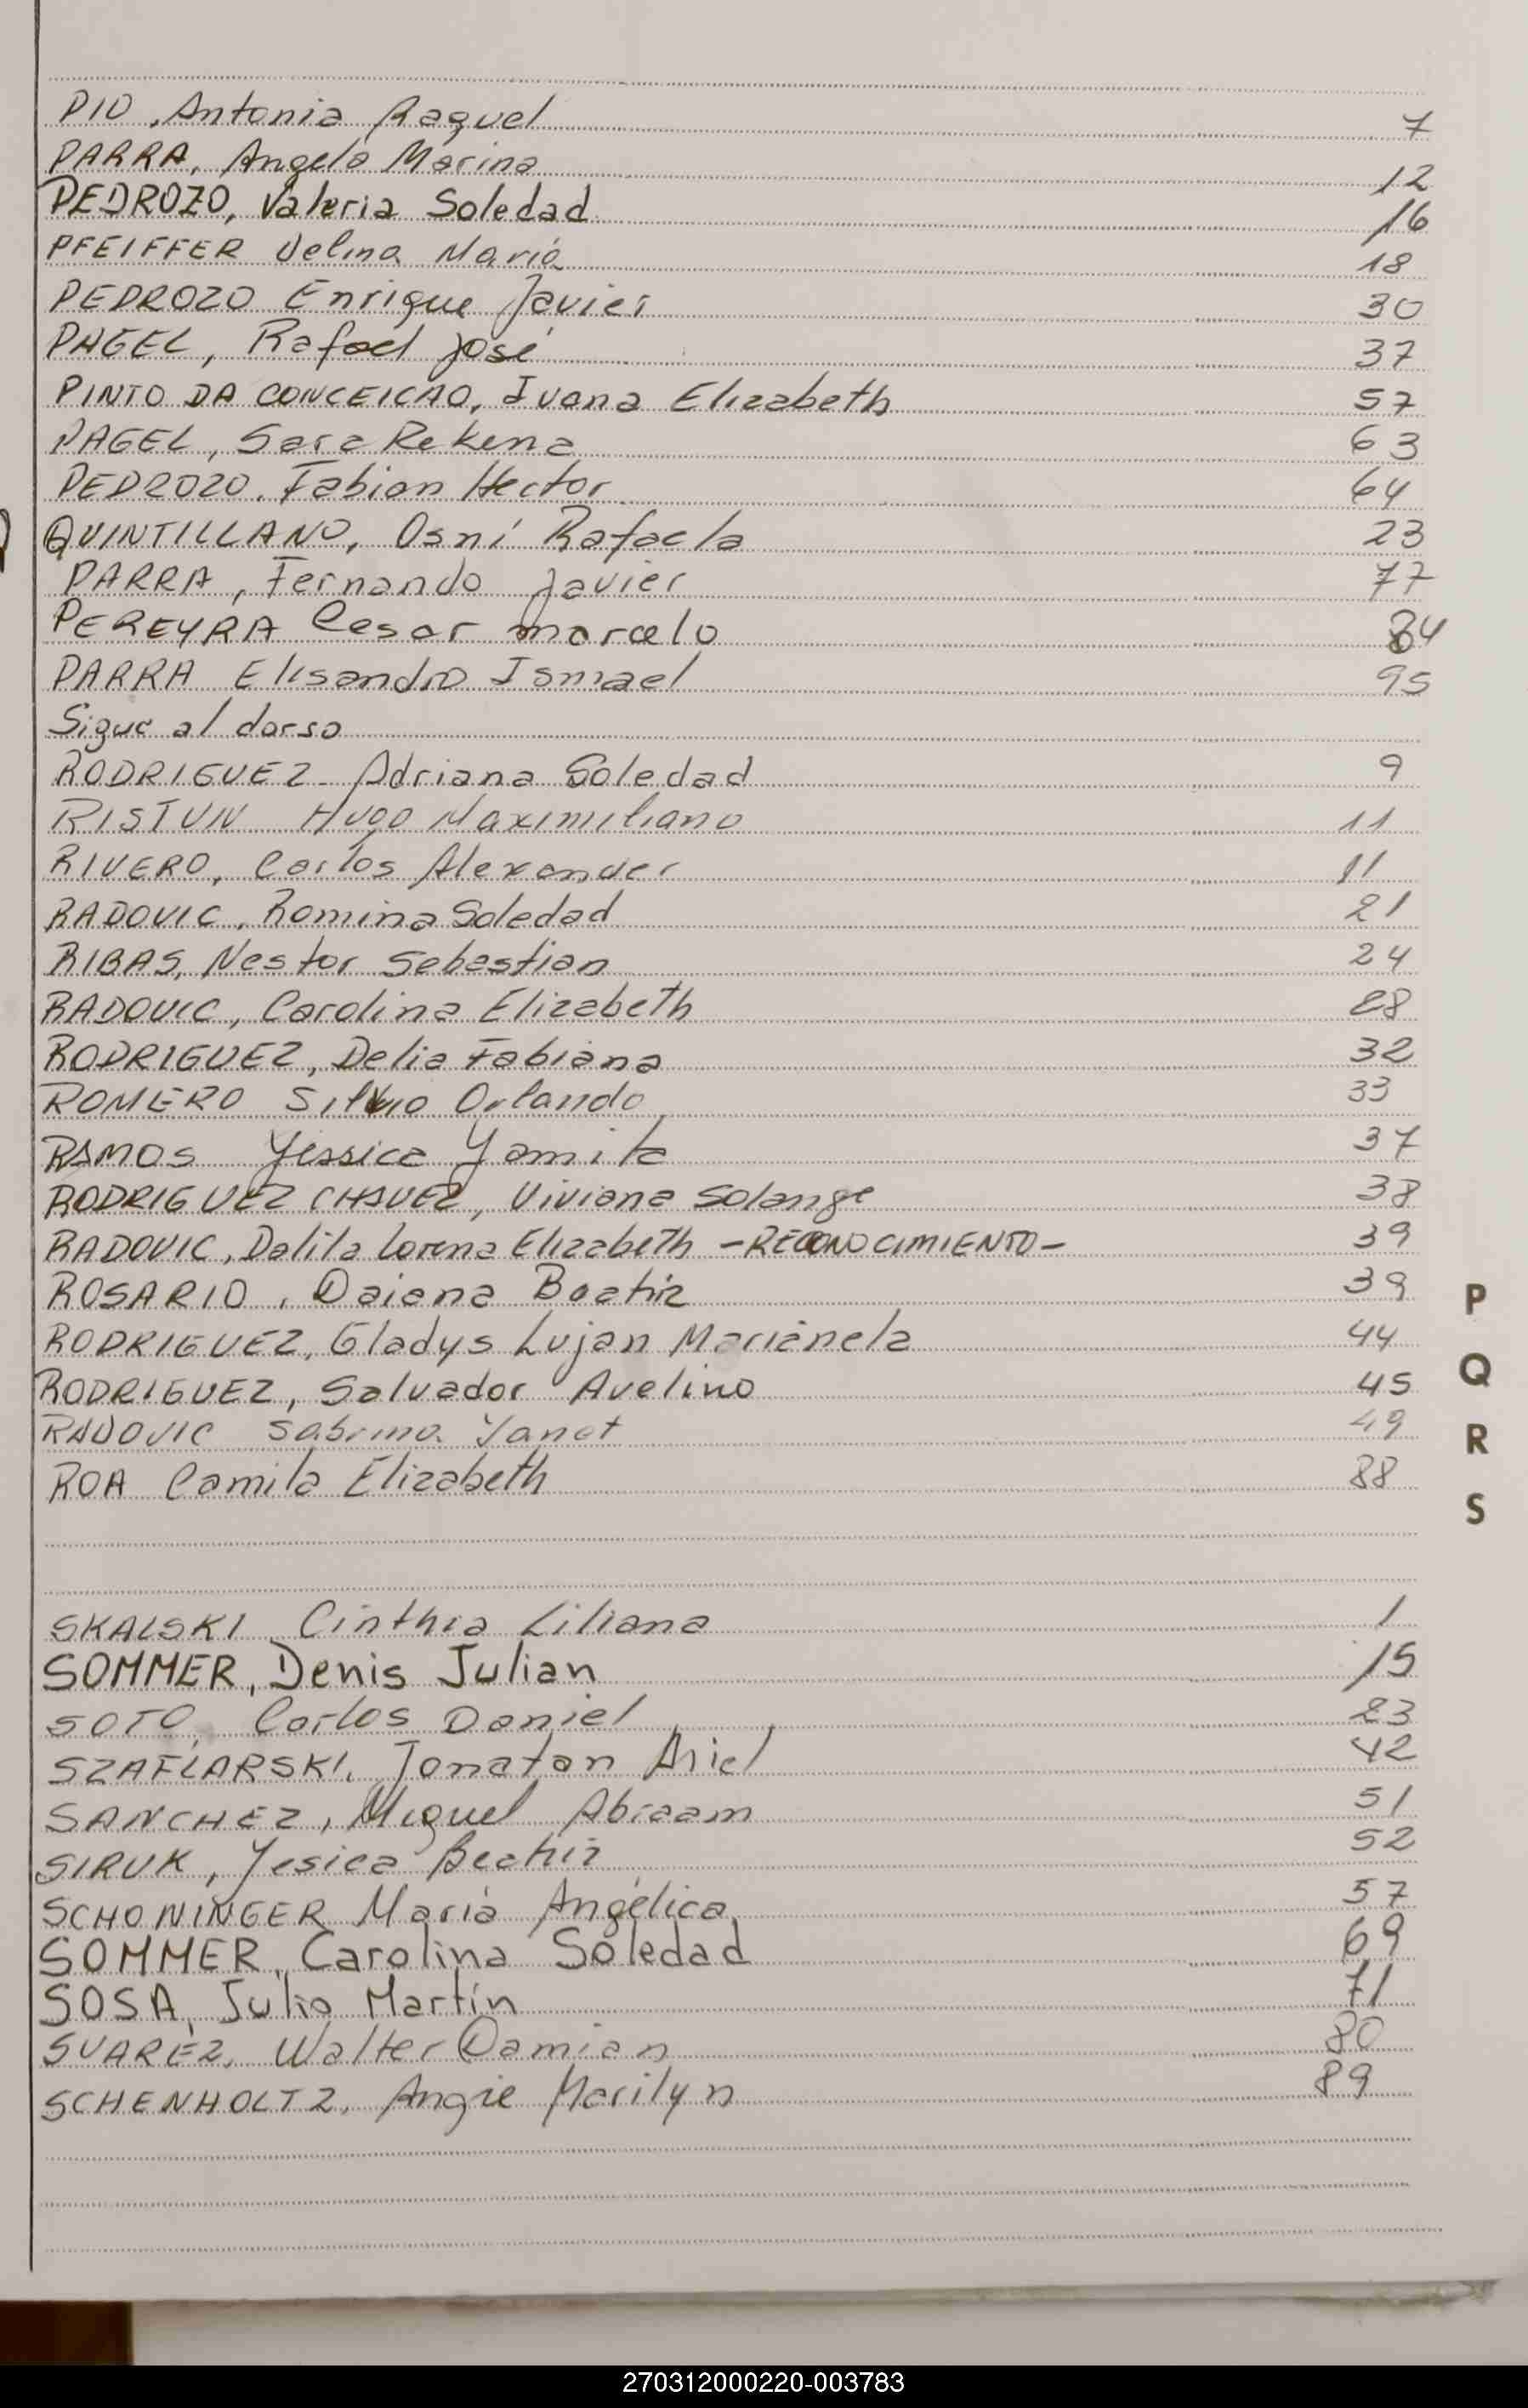 PIO, Antonia Raquel 7
PARRA, Angela Marina 12
PEDROZO, Valeria Soledad 16
PFEIFFER Delina María 18
PEDROZO Enrique Javier 30
PAGEL, Rafael José 37
PINTO DA CONCEICAO, Ivana Elizabeth 57
PAGEL, Sara Rekena 63
PEDROZO, Fabian Hector 64
QUINTILLANO, Osni Rafaela 23
PARRA, Fernando Javier 77
PEREYRA Cesar Marcelo 84
PARRA Elisandro Ismael 95
Sigue al dorso
RODRIGUEZ Adriana Soledad 9
RISTUN Hugo Maximiliano 11
RIVERO, Carlos Alexander 11
RADOVIC, Romina Soledad 21
RIBAS, Nestor Sebastian 24
RADOVIC, Carolina Elizabeth 28
RODRIGUEZ, Delia Fabiana 32
ROMERO Silvio Orlando 33
RAMOS Yessica Yamila 37
RODRIGUEZ CHAVEZ, Viviana Solange 38
RADOVIC, Dalila Lorena Elizabeth -RECONOCIMIENTO- 39
ROSARIO, Daiana Beatriz 39
RODRIGUEZ, Gladys Lujan Marianela 44
RODRIGUEZ, Salvador Avelino 45
RADOVIC Sabrina Yanet 49
ROA Camila Elizabeth 88
P
Q
R
S
SKALSKI Cinthia Liliana 1
SOMMER, Denis Julian 15
SOTO, Carlos Daniel 23
SZAFLARSKI, Jonatan Ariel 42
SANCHEZ, Miguel Abraam 51
SIRUK, Yesica Beatriz 52
SCHONINGER María Angélica 57
SOMMER, Carolina Soledad 69
SOSA, Julio Martín 71
SUAREZ, Walter Damian 80
SCHENHOLTZ, Angie Marilyn 89
270312000220-003783